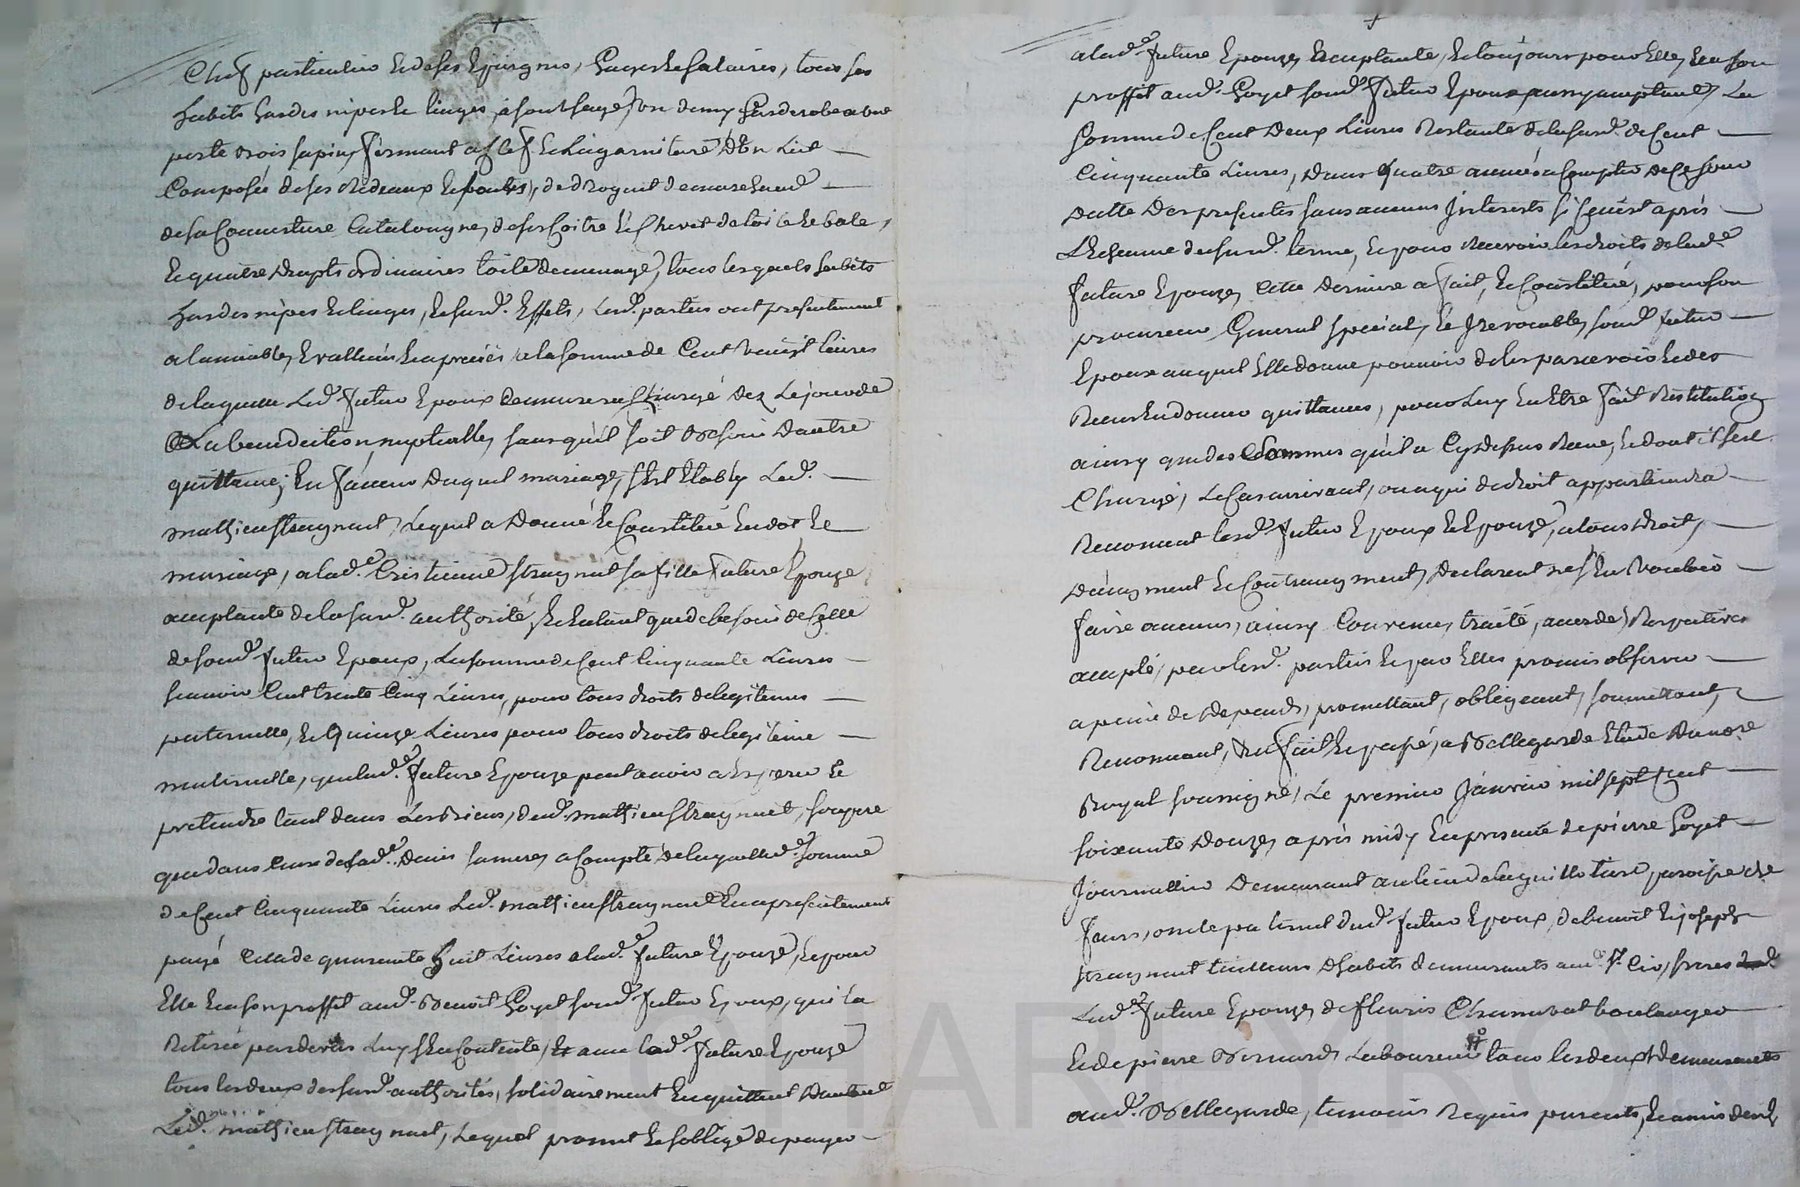 Chef particulier et de ses Epargnes, Gages et salaires, tous ses
habits hardes nipes et linges, a son usage, Un demy Garderobe a une
porte bois sapin, fermant a clef, Et la garniture D'un Lit
Composée de ses Rideaux Et pantes, de droguet de
de sa Couverture Catalougne, de sa Coitre Et Chevet de toile Et bale,
Et quatre Drapts ordinaires toile de menage, tous lesquels habits
hardes nipes Et linges, Et susd. Effets, Lesd. parties ont presentement
a l'amiable, Evallués Et apreciés a la somme de Cent vaingt livres
de laquelle Led. futur Epoux demeurera Chargé dez Le jour de
la benediction nuptialle, sans qu'il soit Besoin D'autre
quittance; En faveur Duquel mariage, s'Est Etably Led.
mathieu stragnat, Lequel a Donné Et Constitué En dot Et
mariage, a lad.e Cristienne stragnat sa fille future Epouze
acceptante de la susd. authorité, Et Entant que de besoin de Celle
de sond. futur Epoux, La somme de Cent Cinquante Livres
scavoir Cent trente Cinq Livres, pour tous droits de legitimes
paternelle, Et Quinze Livres pour tous droits de legitime
maternelle, que lad.e future Epouze peut avoir a Esperer Et
pretendre tant dans Les Biens, dud. mathieu stragnat, son pere
que dans Ceux de lad.e Denis sa mere, a Compte de laquelle d.e somme
de Cent Cinquante Livres Led. mathieu stragnat En a presentement
payé Celle de quarante huit Livres a lad.e future Epouze, Et pour
Elle En a son proffit aud. Benoit Goyet sond. futur Epoux, qui la
Retirée pardevers Luy s'En Contente, Et avec lad.e future Epouze
tous les deux des susd. authorités, solidairement En quittent D'autant
Led. mathieu stragnat, Lequel promet Et s'oblige de payer
a lad.e future Epouze, acceptante, Et toujours pour Elle, En a son
proffit aud. Goyet sond. futur Epoux La
somme de Cent Deux Livres Restante de la susd. de Cent
Cinquante Livres, Dans Quatre années a Compter de Ce jour
Datte Des presentes sans aucuns Interests si n'Est après
L'Echeance du susd. terme, Et pour Recevoir les droits de lad.e
future Epouze, Cette Derniere a fait, Et Constitué, pour son
procureur General special, Et Irrevocable, sond. futur
Epoux auquel Elle donne pouvoir de les percevoir Et des
Receus En donner quittances, pour Luy En Etre fait Restitution
ainsy que des sommes qu'il a Cy dessus Receu, Et dont il s'est
Chargé, Le Cas arrivant, ou a qui de droit appartiendra
Renoncent lesd. futur Epoux Et Epouze, a tous Droits,
D'augment Et Contraugment, Declarent ne s'En vouloir
faire aucuns, ainsy Convenu, traité, accordé, Respectivement
accepté, par lesd. parties Et par Elles promis observer
a peine de Depends, promettant, obligeant, soumettant,
Renonceant, &c. fait Et passé, a Bellegarde Etude Du nore
Royal soussigné, Le premier Janvier mil sept Cent
soixante Douze, après midy En presence de pierre Goyet
Journallier Demeurant au lieu de la guillotiere, paroisse de
Feurs, oncle paternel dud. futur Epoux, de benoit Et joseph
stragnat tailleurs D'habits demeurants aud. St Cir, freres
Lad.e future Epouze, de fleuris Chanavat boulanger
Et de pierre Bernard, Laboureur tous les deux Demeurants
aud. Bellegarde, temoins Requis parents, Et amis desd.